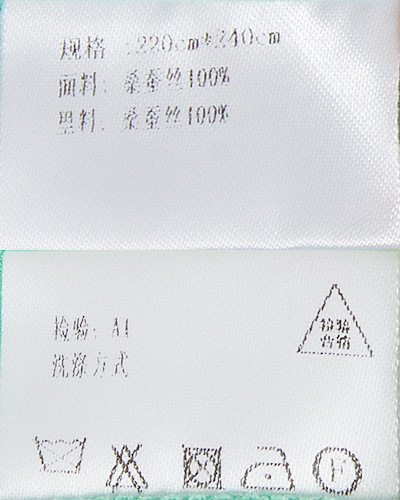 规格 :220cm*240cm
面料: 桑蚕丝100%
里料: 桑蚕丝100%
检验: A1
检验
合格
洗涤方式
F